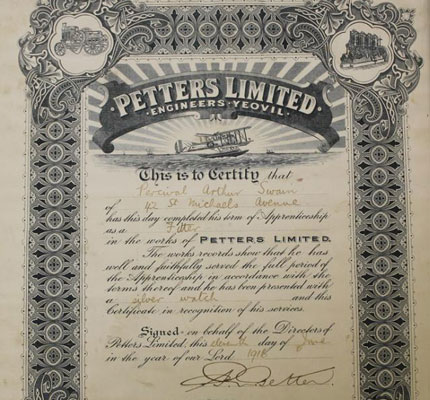 PETTERS LIMITED
ENGINEERS-YEOVIL
This is to Certify that
Percival Arthur Swain
of 42 St Michaels Avenue
has this day completed his term of Apprenticeship
as a Fitter
in the works of PETTERS LIMITED.
The works records show that he has
well and faithfully served the full period of
the Apprenticeship in accordance with the
terms thereof and he has been presented with
a silver watch and this
Certificate in recognition of his services.
Signed on behalf of the Directors of
Petters Limited, this eleventh day of June
in the year of our Lord 1918
Petter.